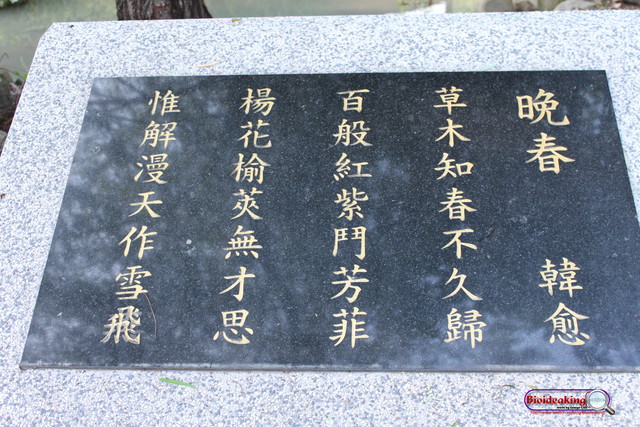 晚春 韓愈
草木知春不久歸
百般紅紫鬥芳菲
楊花榆莢無才思
惟解漫天作雪飛
Bioideaking